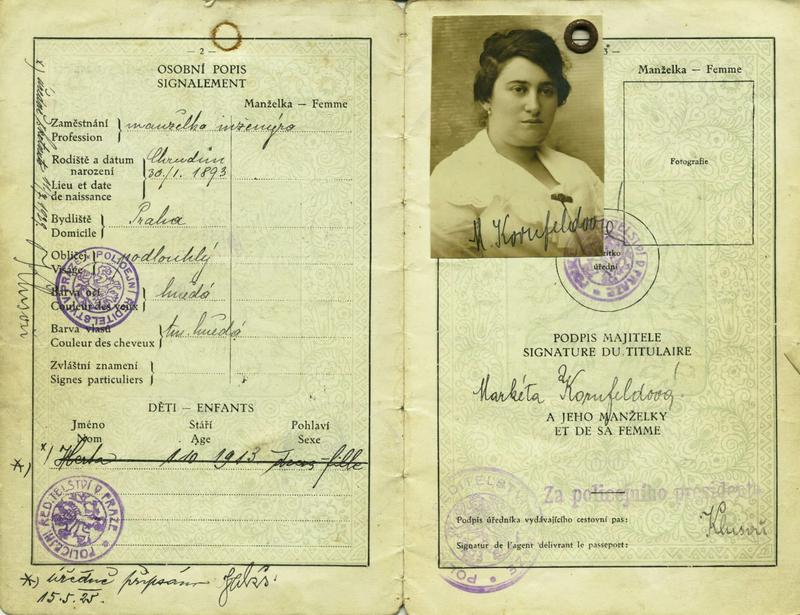 – 2 –
OSOBNÍ POPIS
SIGNALEMENT
Manželka – Femme
Zaměstnání
Profession
manželka inženýra
Rodiště a datum
narození
Lieu et date
de naissance
Chrudim
30./1. 1893
Bydliště
Domicile
Praha
Obličej
Visage
podlouhlý
Barva očí
Couleur des yeux
hnědá
Barva vlasů
Couleur des cheveux
tm. hnědá
Zvláštní znamení
Signes particuliers
DĚTI – ENFANTS
Jméno
Nom
Stáří
Age
Pohlaví
Sexe
*) Herta 1913 fille
*)
POLICEJNÍ ŘEDITELSTVÍ V PRAZE
POLICEJNÍ ŘEDITELSTVÍ V PRAZE
*) úředně připsáno
15.5.25.
M. Kornfeldová
Manželka – Femme
Fotografie
úřední
PODPIS MAJITELE
SIGNATURE DU TITULAIRE
Markéta Kornfeldová
A JEHO MANŽELKY
ET DE SA FEMME
Za policejního presidenta
Podpis úředníka vydávajícího cestovní pas:
Signatur de l'agent délivrant le passeport: